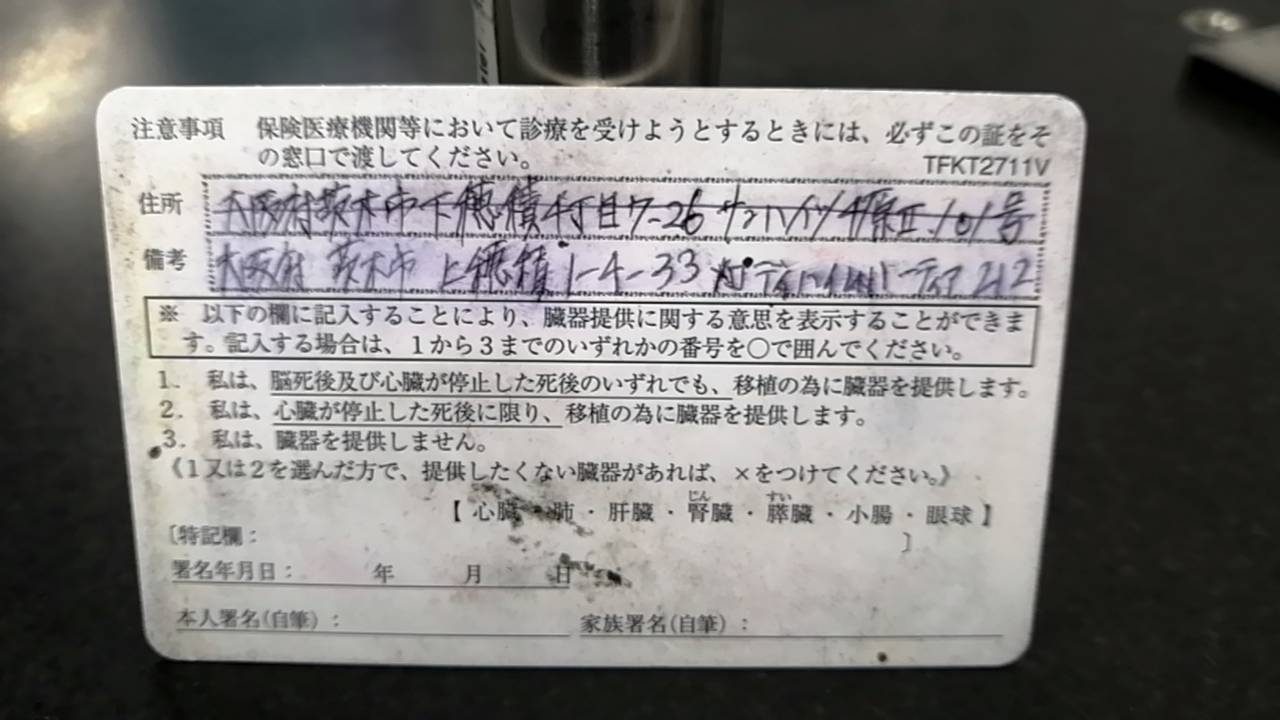 注意事項 保険医療機関等において診療を受けようとするときには、必ずこの証をそ
の窓口で渡してください。
TFKT2711V
住所 大阪府茨木市下穂積 丁目7-26 サンハイツ Ⅱ.101号
備考 大阪府 茨木市 上穂積1-4-33 212
※ 以下の欄に記入することにより、臓器提供に関する意思を表示することができま
す。記入する場合は、1から3までのいずれかの番号を○で囲んでください。
1. 私は、脳死後及び心臓が停止した死後のいずれでも、移植の為に臓器を提供します。
2. 私は、心臓が停止した死後に限り、移植の為に臓器を提供します。
3. 私は、臓器を提供しません。
《1又は2を選んだ方で、提供したくない臓器があれば、×をつけてください。》
じん すい
【 心臓・肺・肝臓・腎臓・膵臓・小腸・眼球 】
〔特記欄: 〕
署名年月日: 年 月 日
本人署名(自筆): 家族署名(自筆):